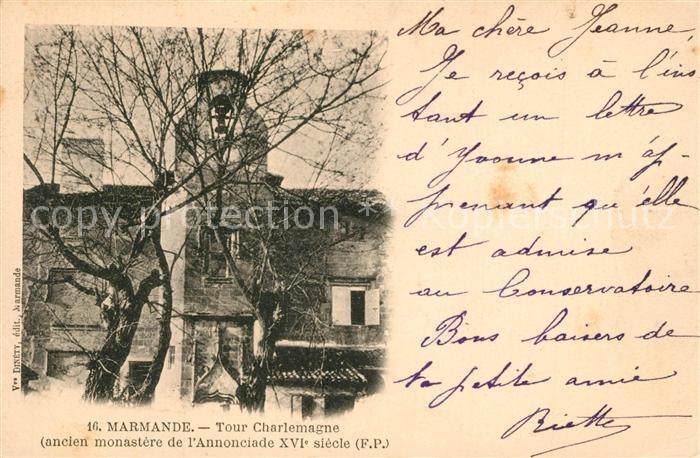 Ma chère Jeanne,
Je reçois à l'ins
tant un lettre
d'Yvonne m'ap-
prenant qu'elle
est admise
au Conservatoire
Bons baisers de
ta petite amie
Riette
copy protection ** Kopierschutz
Vve DINÉTY, édit., Marmande
16. MARMANDE. — Tour Charlemagne
(ancien monastère de l'Annonciade XVIe siècle (F.P.)